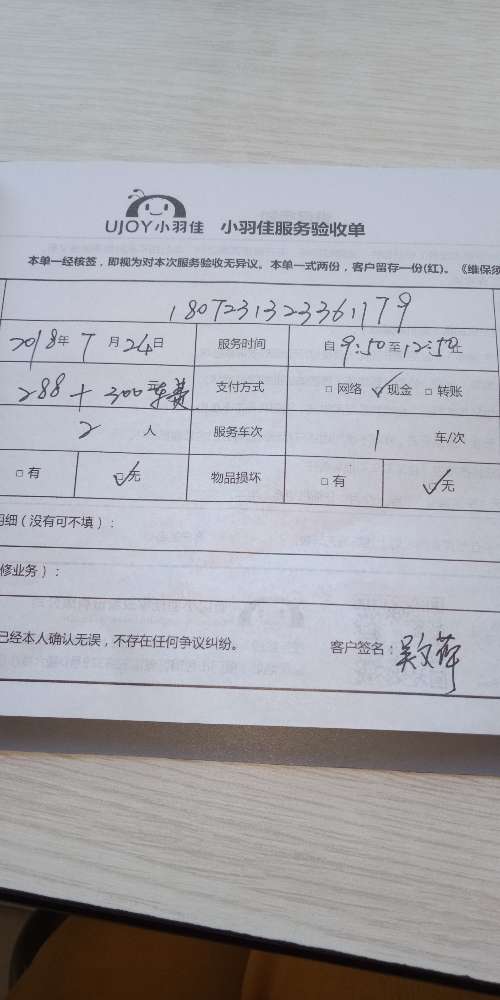 UJOY小羽佳 小羽佳服务验收单
本单一经核签，即视为对本次服务验收无异议。本单一式两份，客户留存一份(红)。《维保须
18072313233361179
2018年 7 月24日 服务时间 自9:50至12:50止
288+300车费 支付方式 □网络 ☑现金 □转账
2 人 服务车次 1 车/次
□有 ☑无 物品损坏 □有 ☑无
明细（没有可不填）：
修业务）：
已经本人确认无误，不存在任何争议纠纷。 客户签名：吴文